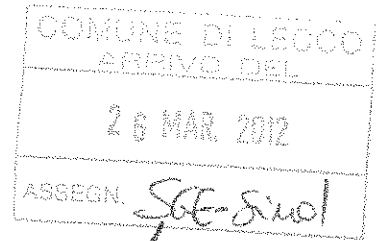 COMUNE DI LECCO
ARRIVO DEL
26 MAR. 2012
ASSEGN.